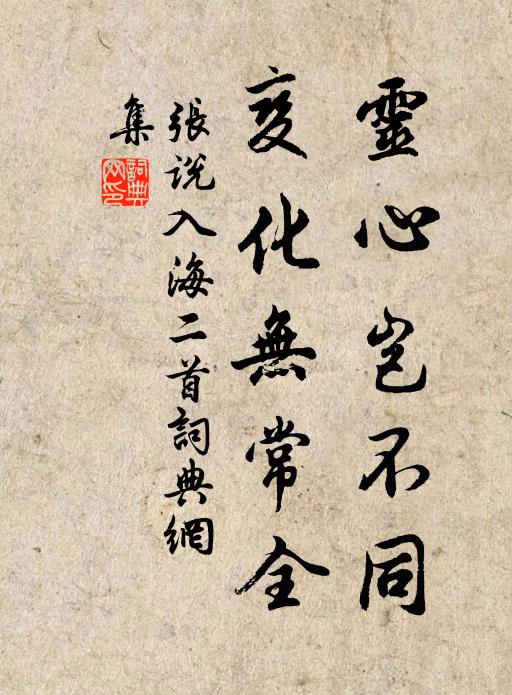 靈心豈不同
變化無常全
張說入海二首詞典網
集
詞典
网印